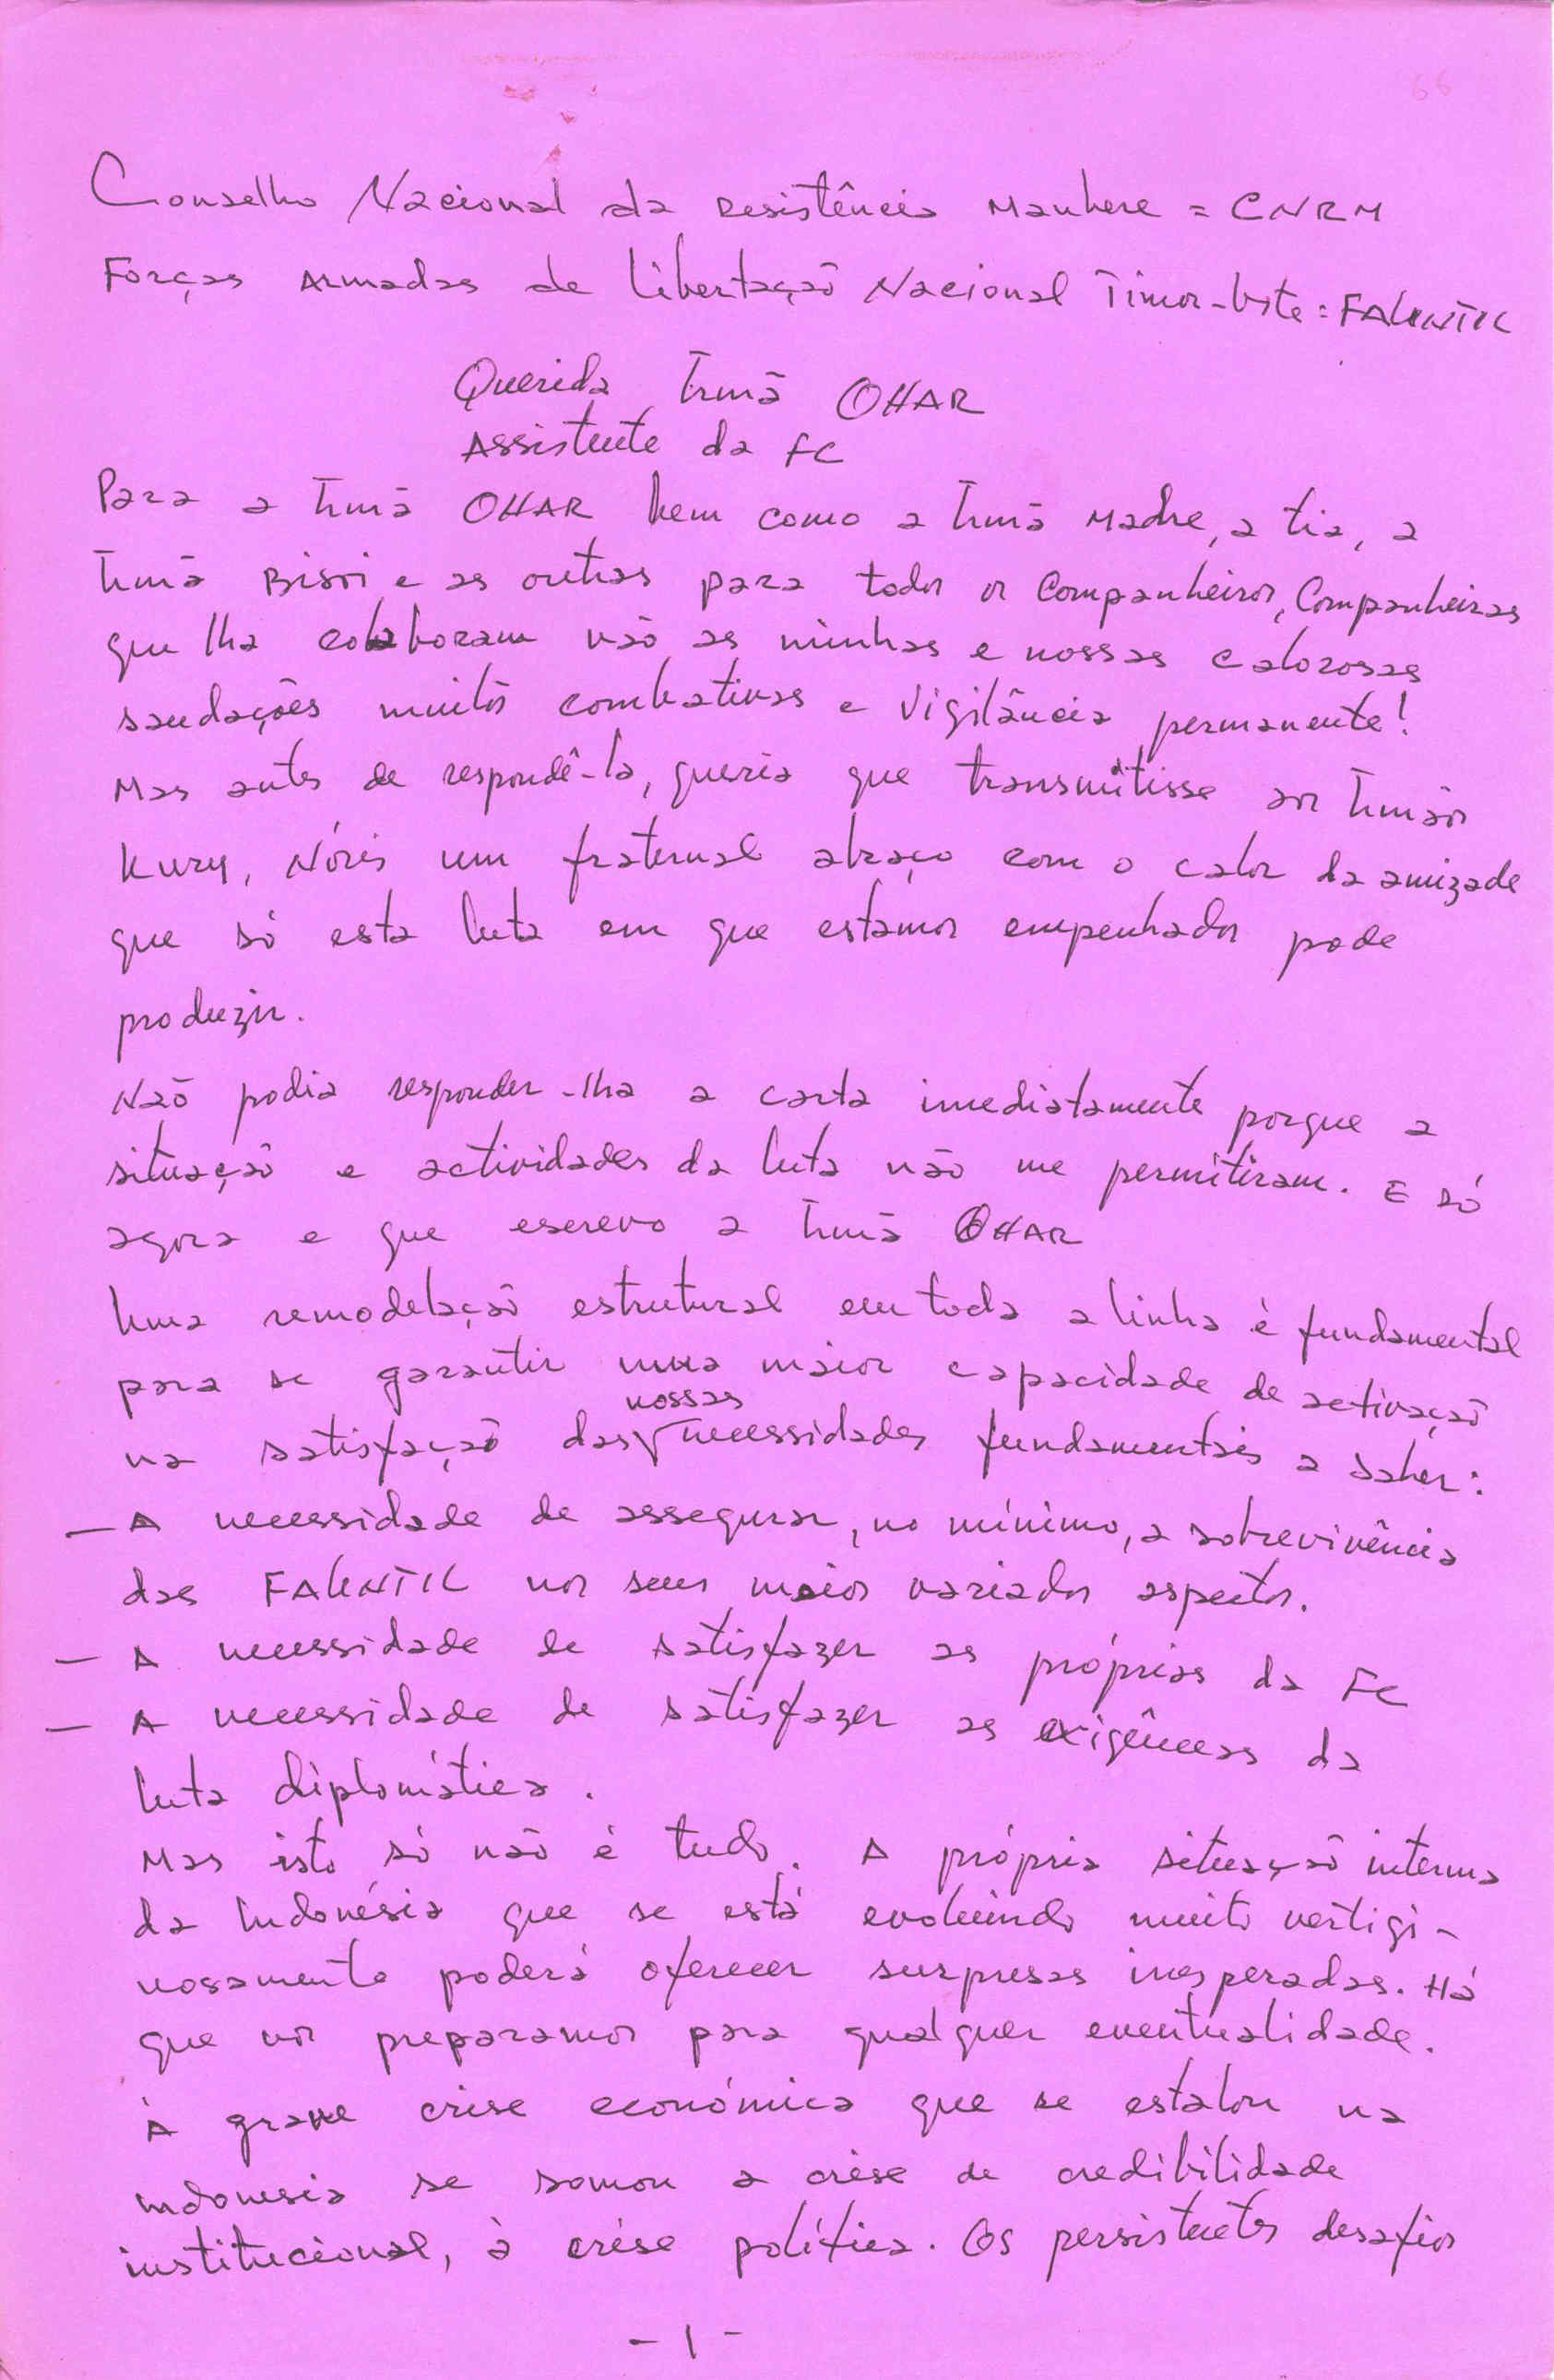 66
Conselho Nacional da Resistência Maubere = CNRM
Forças Armadas de Libertação Nacional Timor-Leste: FALINTIL
Querida Irmã OHAR
Assistente da FC
Para a Irmã OHAR bem como a Irmã Madre, a tia, a
Irmã Bisoi e as outras para todos os Companheiros, Companheiras
que lha colaboram vão as minhas e nossas calorosas
saudações muitos combativas e vigilância permanente!
Mas antes de respondê-la, queria que transmitisse aos Irmãos
Kury, Nóris um fraternal abraço com o calor da amizade
que só esta luta em que estámos empenhados pode
produzir.
Não podia responder-lha a carta imediatamente porque a
situação e actividades da luta não me permitiram. E só
agora e que escrevo a Irmã OHAR
Uma remodelação estrutural em toda a linha é fundamental
para se garantir uma maior capacidade de activação
na satisfação das nossas necessidades fundamentais a saber:
- A necessidade de assegurar, no mínimo, a sobrevivência
das FALINTIL nos seus maios variados aspectos.
- A necessidade de satisfazer as próprias da FC
- A necessidade de satisfazer as exigências da
luta diplomática.
Mas isto só não é tudo. A própria situação interna
da Indonésia que se está evoluindo muito vertigi-
nosamente poderá oferecer surpresas inesperadas. Há
que nos preparamos para qualquer eventualidade.
À grave crise económica que se estalou na
Indonesia se somou a crise de credibilidade
institucional, à crise política. Os persistentes desafios
- 1 -